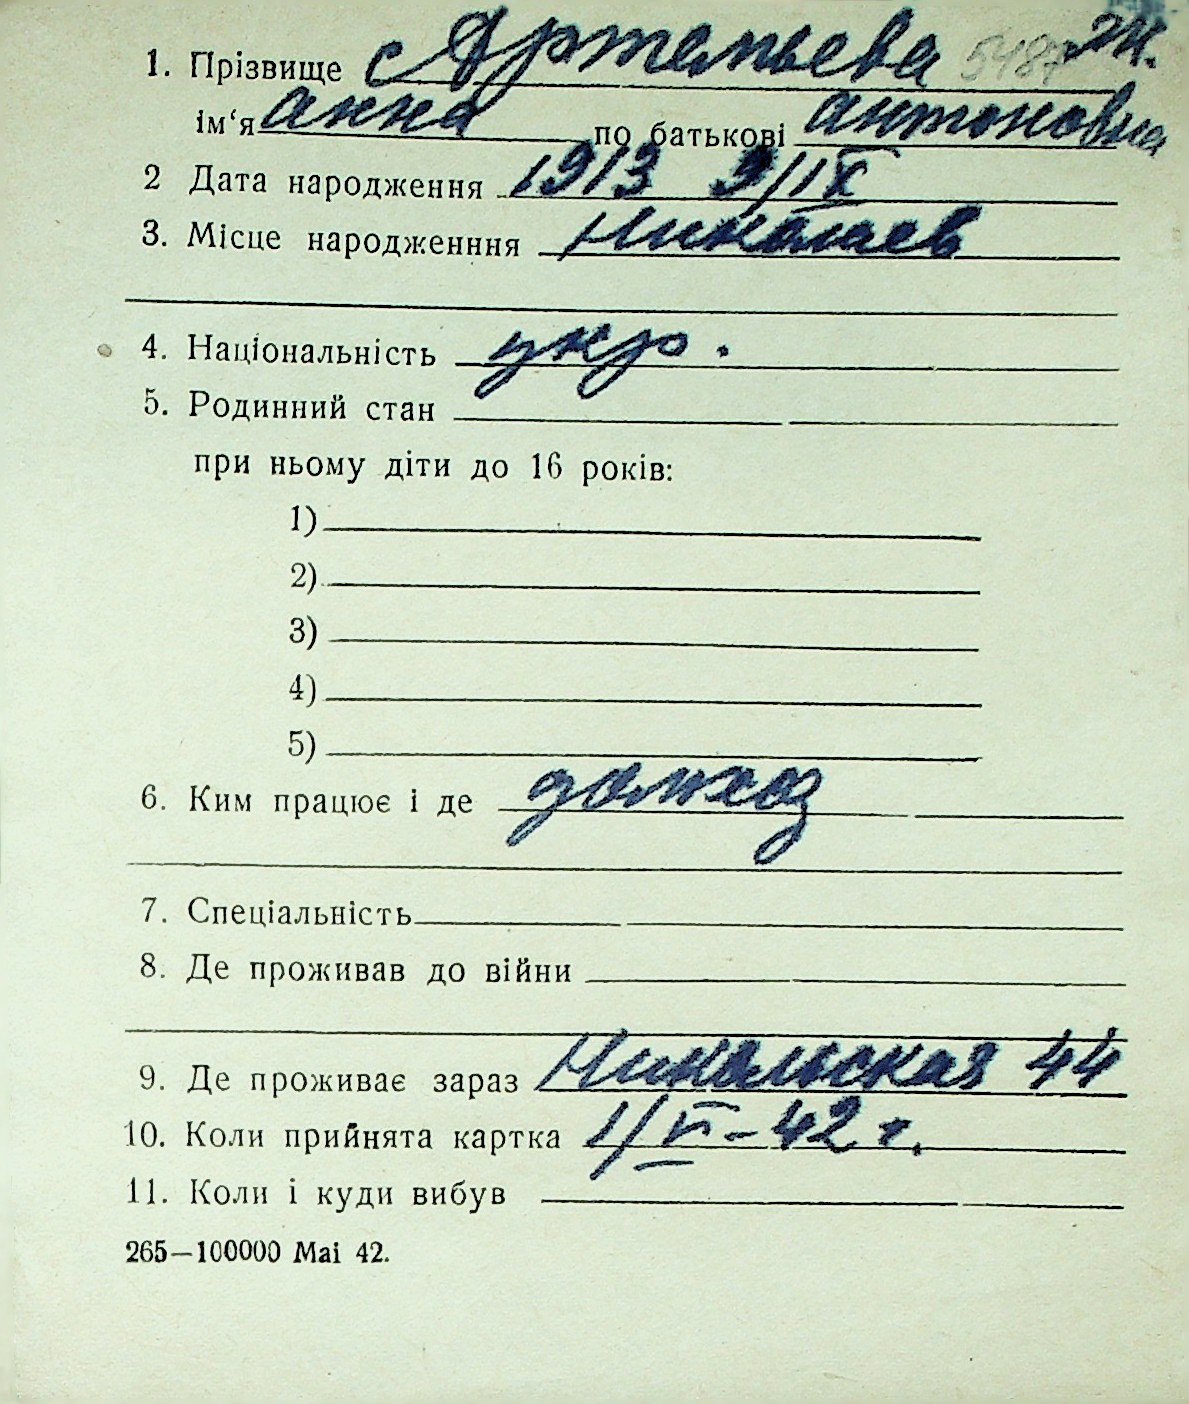 1. Прізвище Артемьева 5487 Ж.
ім'я Анна по батькові Антоновна
2 Дата народження 1913 9/IX
3. Місце народженння Николаев
4. Національність укр.
5. Родинний стан
при ньому діти до 16 років:
1)
2)
3)
4)
5)
6. Ким працює і де домход
7. Спеціальність
8. Де проживав до війни
9. Де проживає зараз Никольская 44
10. Коли прийнята картка 1/VI-42 г.
11. Коли і куди вибув
265—100000 Mai 42.